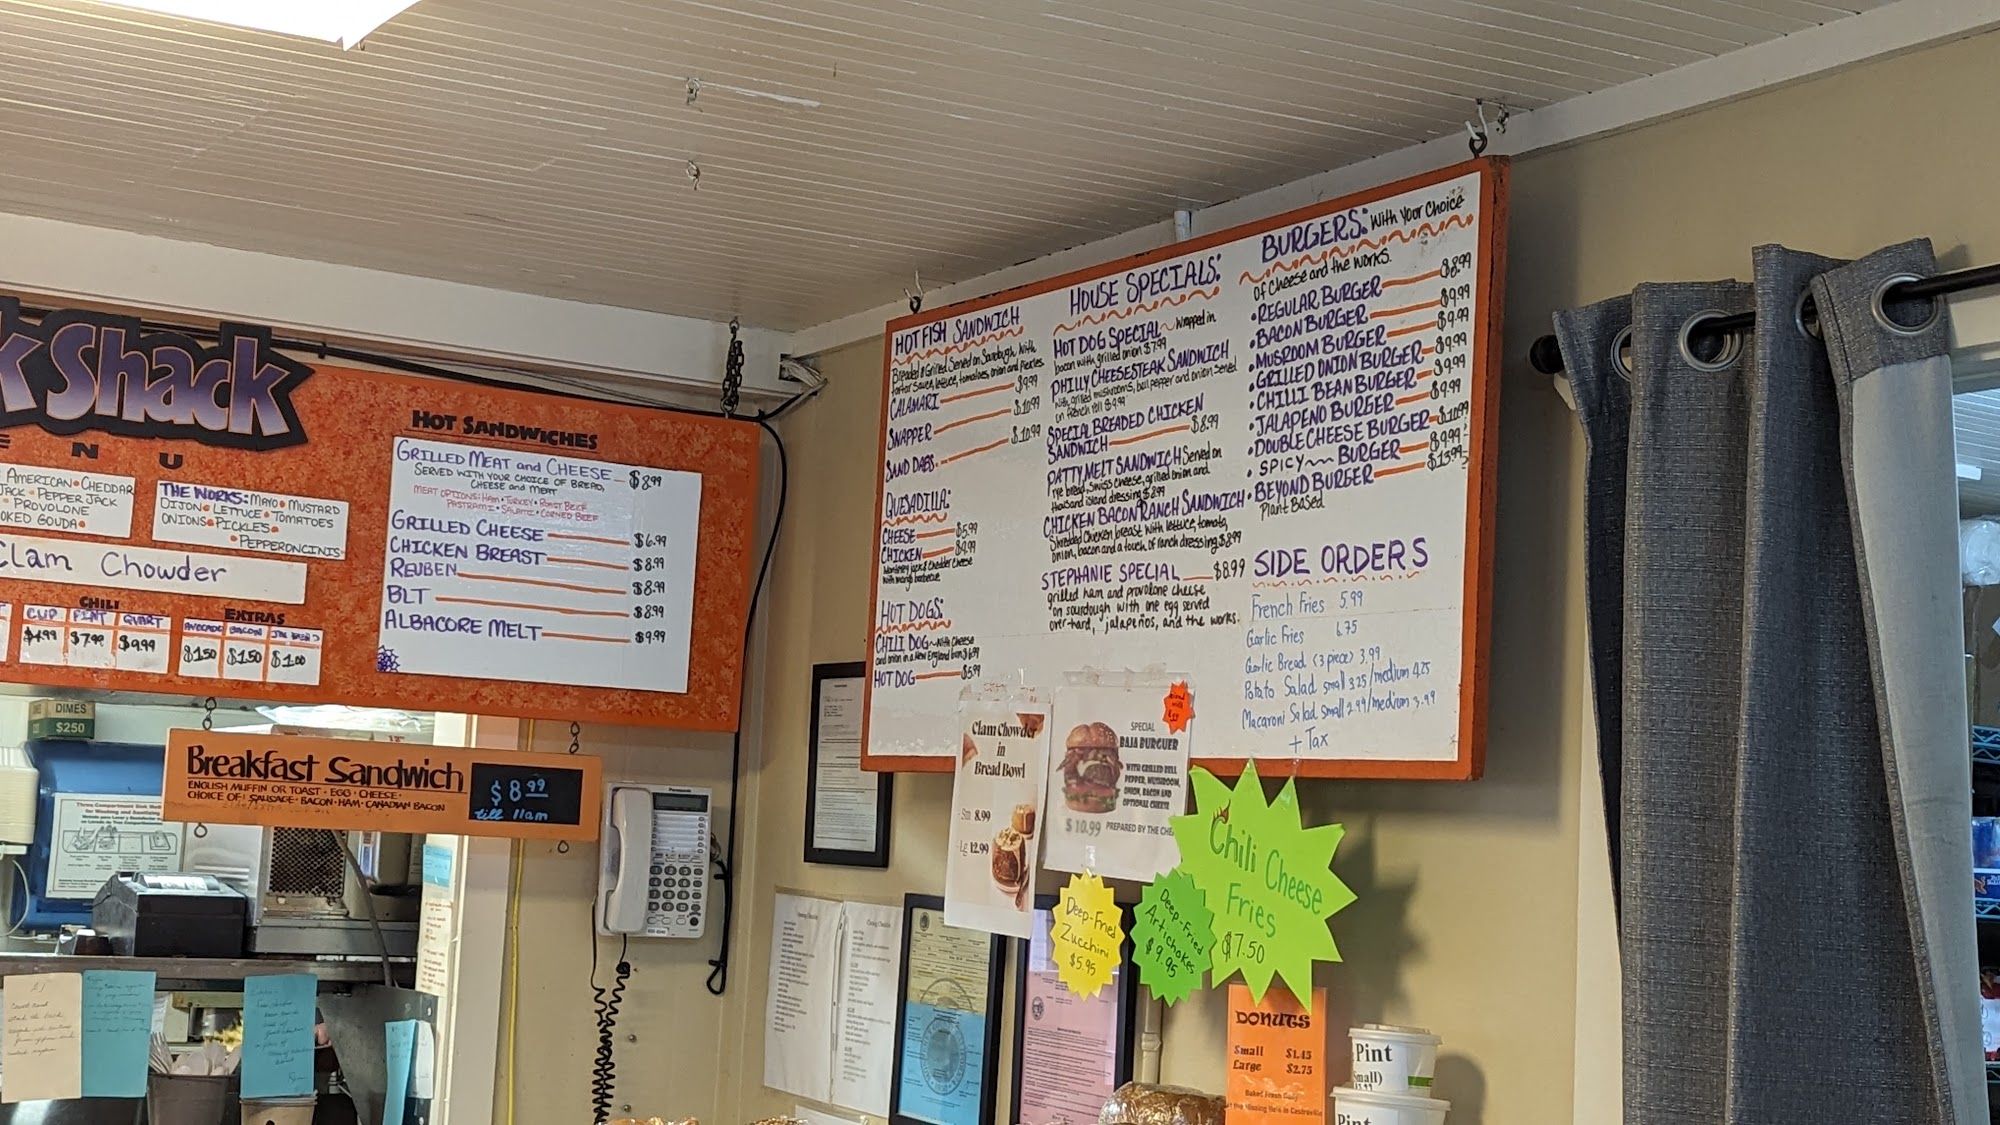 k Shack
E N U
AMERICAN • CHEDDAR
JACK • PEPPER JACK
PROVOLONE
OKED GOUDA •
THE WORKS: MAYO • MUSTARD
DIJON • LETTUCE • TOMATOES
ONIONS • PICKLES •
• PEPPERONCINIS
Clam Chowder
CHILI
CUP PINT QUART
$4.99 $7.99 $9.99
EXTRAS
AVOCADO BACON
$1.50 $1.50 $1.00
HOT SANDWICHES
GRILLED MEAT and CHEESE $8.99
SERVED WITH YOUR CHOICE OF BREAD,
CHEESE and MEAT
MEAT OPTIONS: HAM • TURKEY • ROAST BEEF
PASTRAMI • SALAMI • CORNED BEEF
GRILLED CHEESE $6.99
CHICKEN BREAST $8.99
REUBEN $8.99
BLT $8.99
ALBACORE MELT $9.99
Breakfast Sandwich
ENGLISH MUFFIN OR TOAST • EGG • CHEESE •
CHOICE OF: SAUSAGE • BACON • HAM • CANADIAN BACON
$8.99
till 11am
DIMES
$250
Panasonic
HOT FISH SANDWICH
Breaded & Grilled Served on Sourdough with
tartar sauce, lettuce, tomatoes, onion and Pickles
CALAMARI $9.99
SNAPPER $10.99
SAND DABS $10.99
QUESADILLA:
CHEESE $5.99
CHICKEN $9.99
Monterey jack & Chedder cheese
with mango barbecue
HOT DOGS:
CHILI DOG ~ with Cheese
and onion in a New England bun $6.99
HOT DOG $5.99
HOUSE SPECIALS:
HOT DOG SPECIAL ~ Wrapped in
bacon with grilled onion $7.99
PHILLY CHEESESTEAK SANDWICH
with grilled mushrooms, bell pepper and onion Served
on french roll $9.99
SPECIAL BREADED CHICKEN
SANDWICH $8.99
PATTY MELT SANDWICH Served on
rye bread, Swiss cheese, grilled onion and
thousand island dressing $8.99
CHICKEN BACON RANCH SANDWICH
Shredded Chicken breast with lettuce, tomato,
onion, bacon and a touch of ranch dressing $8.99
STEPHANIE SPECIAL $8.99
grilled ham and provolone cheese
on sourdough with one egg served
over-hard, jalapeños, and the works.
BURGERS: With Your Choice
of Cheese and the Works.
• REGULAR BURGER $8.99
• BACON BURGER $9.99
• MUSROOM BURGER $9.99
• GRILLED ONION BURGER $9.99
• CHILLI BEAN BURGER $9.99
• JALAPENO BURGER $9.99
• DOUBLE CHEESE BURGER $10.99
• SPICY ~~ BURGER $9.99
• BEYOND BURGER $13.99
Plant Based
SIDE ORDERS
French Fries 5.99
Garlic Fries 6.75
Garlic Bread <3 piece> 3.99
Potato Salad small 3.25/medium 4.25
Macaroni Salad small 2.99/medium 3.99
+ Tax
Clam Chowder
in
Bread Bowl
Sm 8.99
Lg 12.99
SPECIAL
BAJA BURGUER
WITH GRILLED BELL
PEPPER, MUSHROOM,
ONION, BACON AND
OPTIONAL CHEESE
$ 10.99 PREPARED BY THE CHE
Deep-Fried
Zucchini
$5.95
Deep-Fried
Artichokes
$9.95
Chili Cheese
Fries
$7.50
DONUTS
Small $1.45
Large $2.75
Baked Fresh Daily
Pint
Small)
Pint